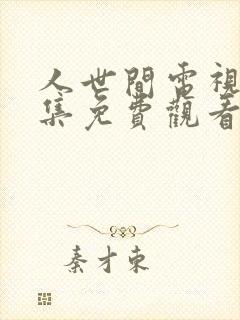 人世間電視
集免費觀看
秦才東